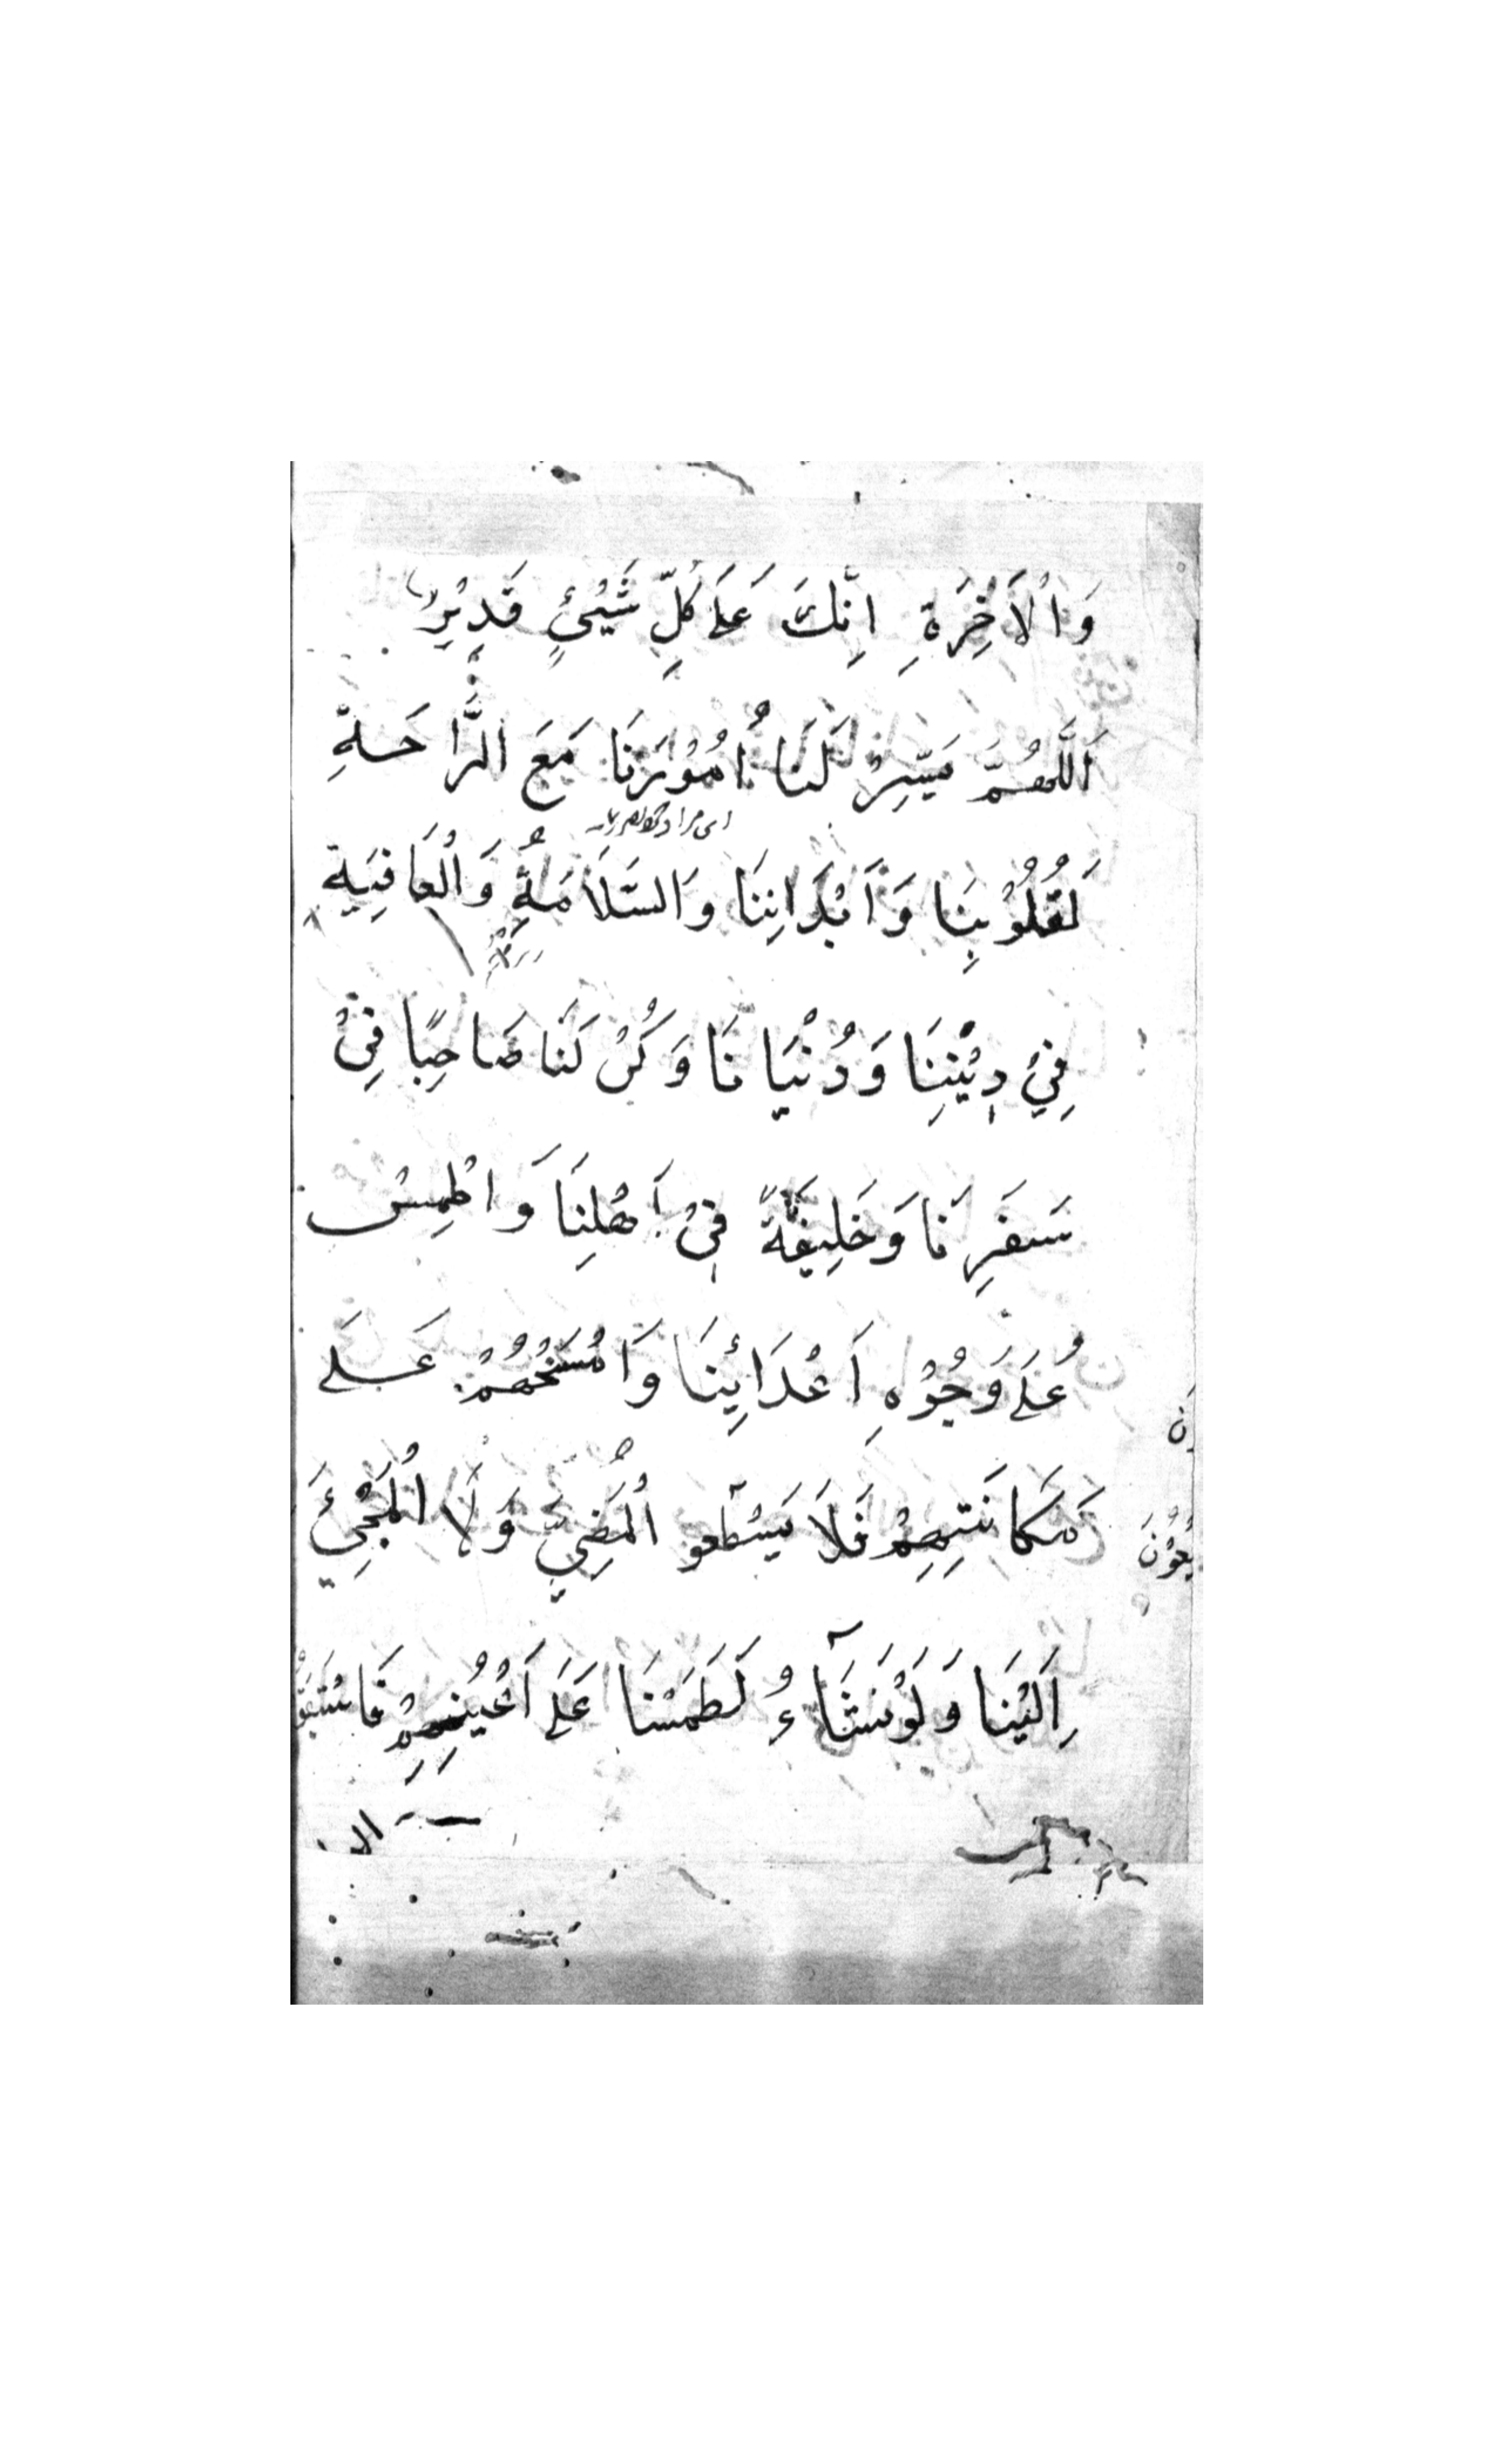 وَالْاَخِرَةِ اِنَّكَ عَلَى كُلِّ شَيْئٍ قَدِيْرُ
اَللَّهُمَّ يَسِّرْ لَنَا اُمُوْرَنَا مَعَ الرَّاحَةِ
لَقُلُوْبِنَا وَاَبْدَانِنَا وَالسَّلَامَةِ وَالْعَافِيَةِ
فِيْ دِيْنِنَا وَدُنْيَانَا وَكُنْ لَنَا صَاحِبًا فِيْ
سَفَرِنَا وَخَلِيفَةً فِيْ اَهْلِنَا وَاطْمِسْ
عَلَى وُجُوْهِ اَعْدَائِنَا وَامْسَخْهُمْ عَلَى
مَكَانَتِهِمْ فَلَا يَسْطَعو الْمُضِيَّ وَلَا الْمَجِيْئَ
اِلَيْنَا وَلَوْ نَشَآءُ لَطَمَسْنَا عَلَى اَعْيُنِهِمْ فَاسْتَبَقُو